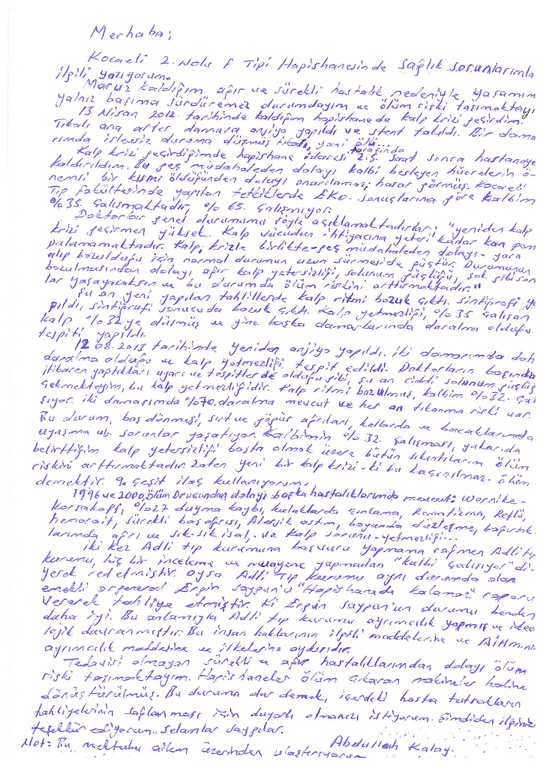 Merhaba;
Kocaeli 2 Nolu F Tipi Hapishanesinde sağlık sorunlarımla
ilgili yazıyorum.
Maruz kaldığım ağır ve sürekli hastalık nedeniyle yaşamımı
yalnız başıma sürdüremez durumdayım ve ölüm riski taşımaktayım
13 Nisan 2012 tarihinde kaldığım hapishanede kalp krizi geçirdim.
Tıkalı ana arter damara anjiyo yapıldı ve stent takıldı. Bir dama
rımda işlevsiz duruma düşmüş yani ölü.
Kalp krizi geçirdiğimde hapishane idaresi tarafında 2.5 saat sonra hastaneye
kaldırıldım. Bu geç müdahaleden dolayı kalbi besleyen hücrelerin ö-
nemli bir kısmı öldüğünden dolayı onarılamaz hasar görmüş. Kocaeli
Tıp fakültesinde yapılan tetkiklerde EKO sonuçlarına göre kalbim
%35 çalışmaktadır, %65 çalışmıyor.
Doktorlar genel durumumu şöyle açıklamaktadırlar; "yeniden kalp
krizi geçirmen yüksek. Kalp vücudun ihtiyacına yeteri kadar kan pom
palamamaktadır. Kalp krizle birlikte geç müdahaleden dolayı yara
alıp bozulduğu için normal durumun uzun sürmesi de güçtür. Durumunun
bozulmasından dolayı ağır kalp yetersizliği, solunum güçlüğü, şok gibi sorun
lar yaşayacaksın ve bu durumda ölüm riskini arttırmaktadır."
Şu an yeni yapılan tahlillerde kalp ritmi bozuk çıktı. Sintigrafi ya
pıldı, sintigrafi sonucuda bozuk çıktı. Kalp yetmezliği, %35 çalışan
kalp %32'ye düşmüş ve yine başka damarlarında daralma olduğu
tespiti yapıldı.
12.08.2013 tarihinde yeniden anjiyo yapıldı. İki damarımda da
daralma olduğu ve kalp yetmezliği tespit edildi. Doktorların başından
itibaren yaptıkları uyarı ve tespitlerde olduğu gibi, şu an ciddi solunum güçlüğü
çekmekteyim, bu kalp yetmezliğidir. Kalp ritmi bozulmuş, kalbim %32 çalı
şıyor. İki damarımda %70 daralma mevcut ve her an tıkanma riski var.
Bu durum, baş dönmesi, sırt ve göğüs ağrıları, kollarda ve bacaklarımda
uyuşma vb. sorunlar yaşatıyor. Kalbimin %32 çalışması, yukarıda
belirttiğim kalp yetersizliği başta olmak üzere bütün sıkıntıların ölüm
riskini arttırmaktadır. Zaten yeni bir kalp krizi - ki bu kaçınılmaz - ölüm
demektir. 9 çeşit ilaç kullanıyorum.
1996 ve 2000 ölüm Orucundan dolayı başka hastalıklarımda mevcut: Wernike-
korsakoff, %27 duyma kaybı, kulaklarda çınlama, Romatizma, Reflü,
hemoroit, sürekli başağrısı, Alerjik astım, boyunda düzleşme, bağırsak
larımda ağrı ve sık-sık isal, ve kalp sorunu-yetmezliği...
İki kez Adli tıp kurumuna başvuru yapmama rağmen Adli tıp
kurumu, hiç bir inceleme ve muayene yapmadan "kalbi çalışıyor" di-
yerek red etmiştir. Oysa Adli Tıp kurumu aynı durumda olan
emekli orgeneral Ergin Saygun'u "Hapishanede kalamaz" raporu
vererek tahliye etmiştir. Ki Ergin Saygun'un durumu benden
daha iyi. Bu anlamıyla Adli tıp kurumu ayrımcılık yapmış ve ideo
lojik davranmıştır. Bu insan haklarının ilgili maddelerine ve AİHM'nin
ayrımcılık maddesine ve ilkelerine aykırıdır.
Tedavisi olmayan sürekli ve ağır hastalıklarımdan dolayı ölüm
riski taşımaktayım. Hapishaneler ölüm çıkaran makineler haline
dönüştürülmüş. Bu duruma dur demek, içerdeki hasta tutsakların
tahliyelerinin sağlanması için duyarlı olmanızı istiyorum. Şimdiden ilginize
teşekkür ediyorum. Selamlar saygılar.
Abdullah Kalay.
Not: Bu mektubu ailem üzerinden ulaştırıyorum